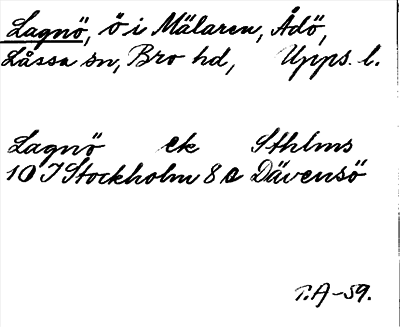 Lagnö, ö i Mälaren, Ådö,
Låssa sn, Bro hd, Upps. l.
Lagnö ek Sthlms
10 I Stockholm 8 a Dävensö
T.A-59.